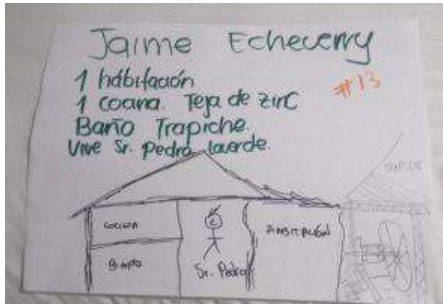 Jaime Echeverry
1 hábitación
#13
1 cocina. Teja de zirC
Baño Trapiche.
Vive Sr. Pedro laverde.
TRAPICHE
COCINA
BAÑO
Sr. Pedro
HABITACIÓN